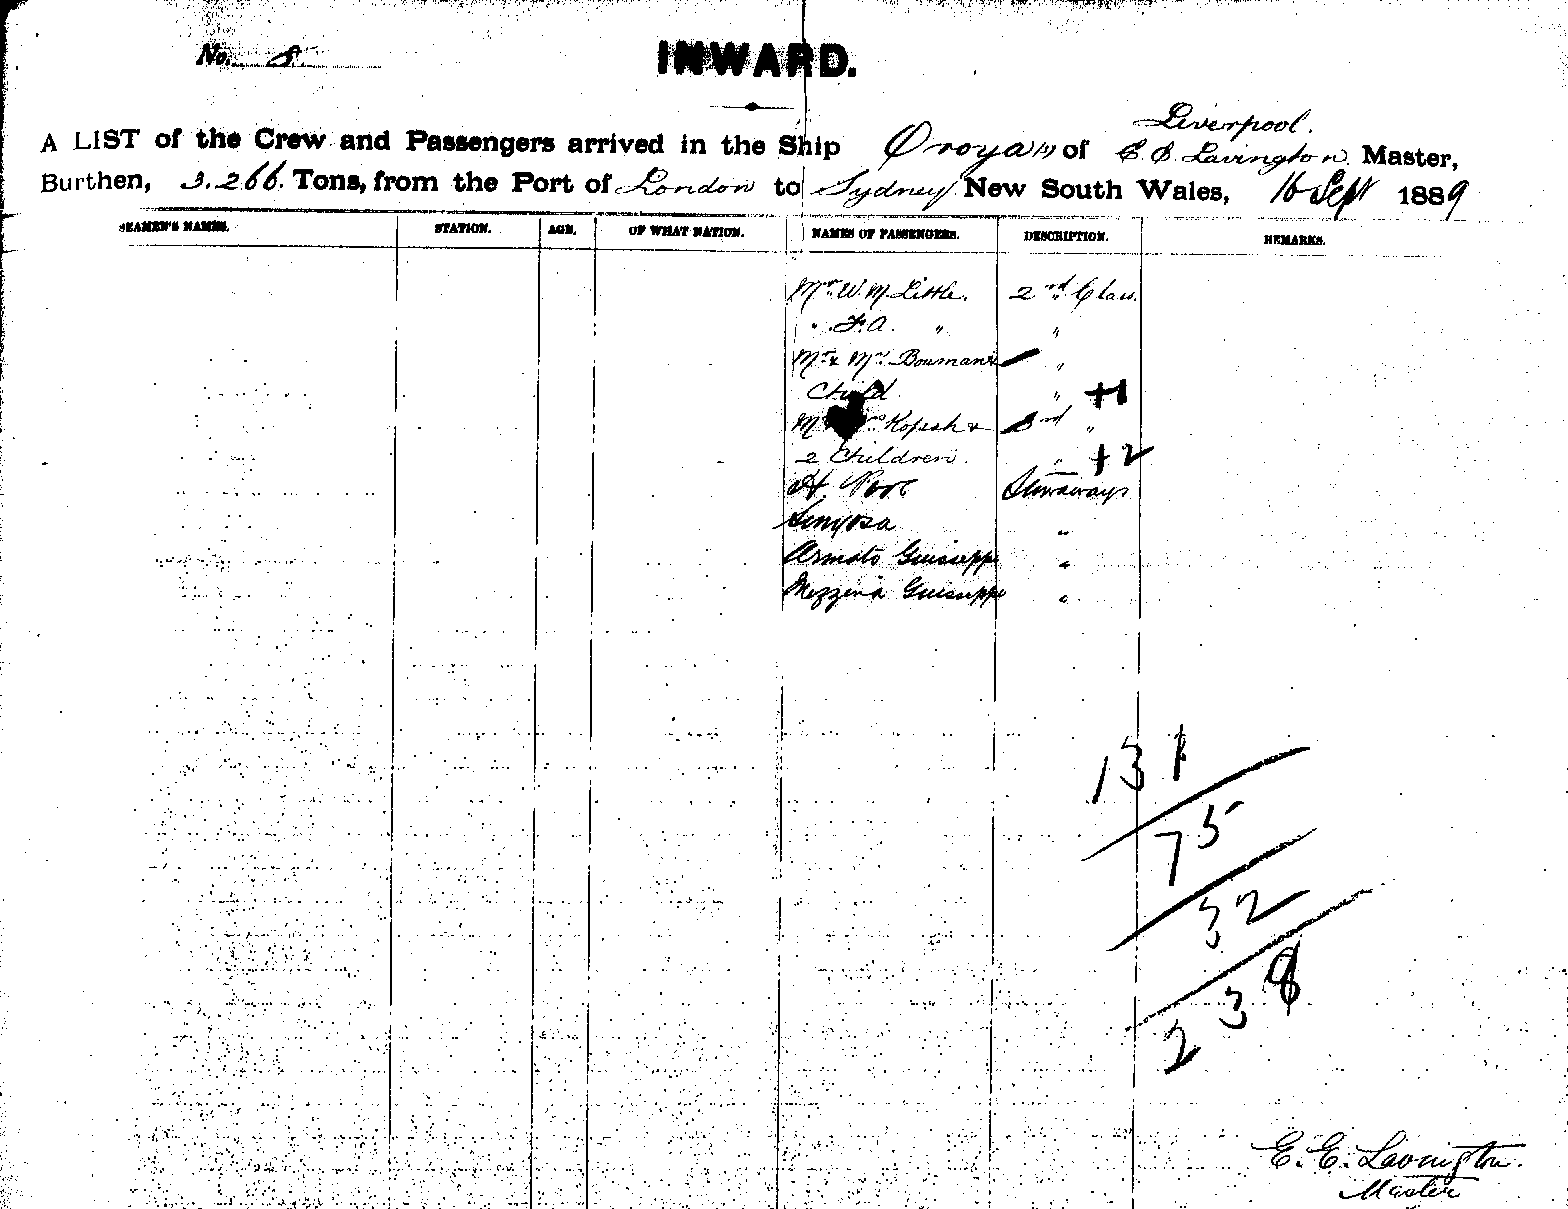 No. 8
INWARD.
Liverpool.
A LIST of the Crew and Passengers arrived in the Ship Oroya (s) of E. E. Lavington Master,
Burthen, 3.266. Tons, from the Port of London to Sydney New South Wales, 16 Sept 1889
SEAMEN'S NAMES. STATION. AGE. OF WHAT NATION. NAMES OF PASSENGERS. DESCRIPTION. REMARKS.
Mr. W. M. Little. 2nd Class.
" F. A. " "
Mr & Mrs Bowman & "
Child " +1
Kopsch & 3rd "
2 Children. " +2
H. Pool Stowaways
"
Armato Guiseppe "
Mezzina Guiseppe "
131
75
32
238
E. E. Lavington.
Master